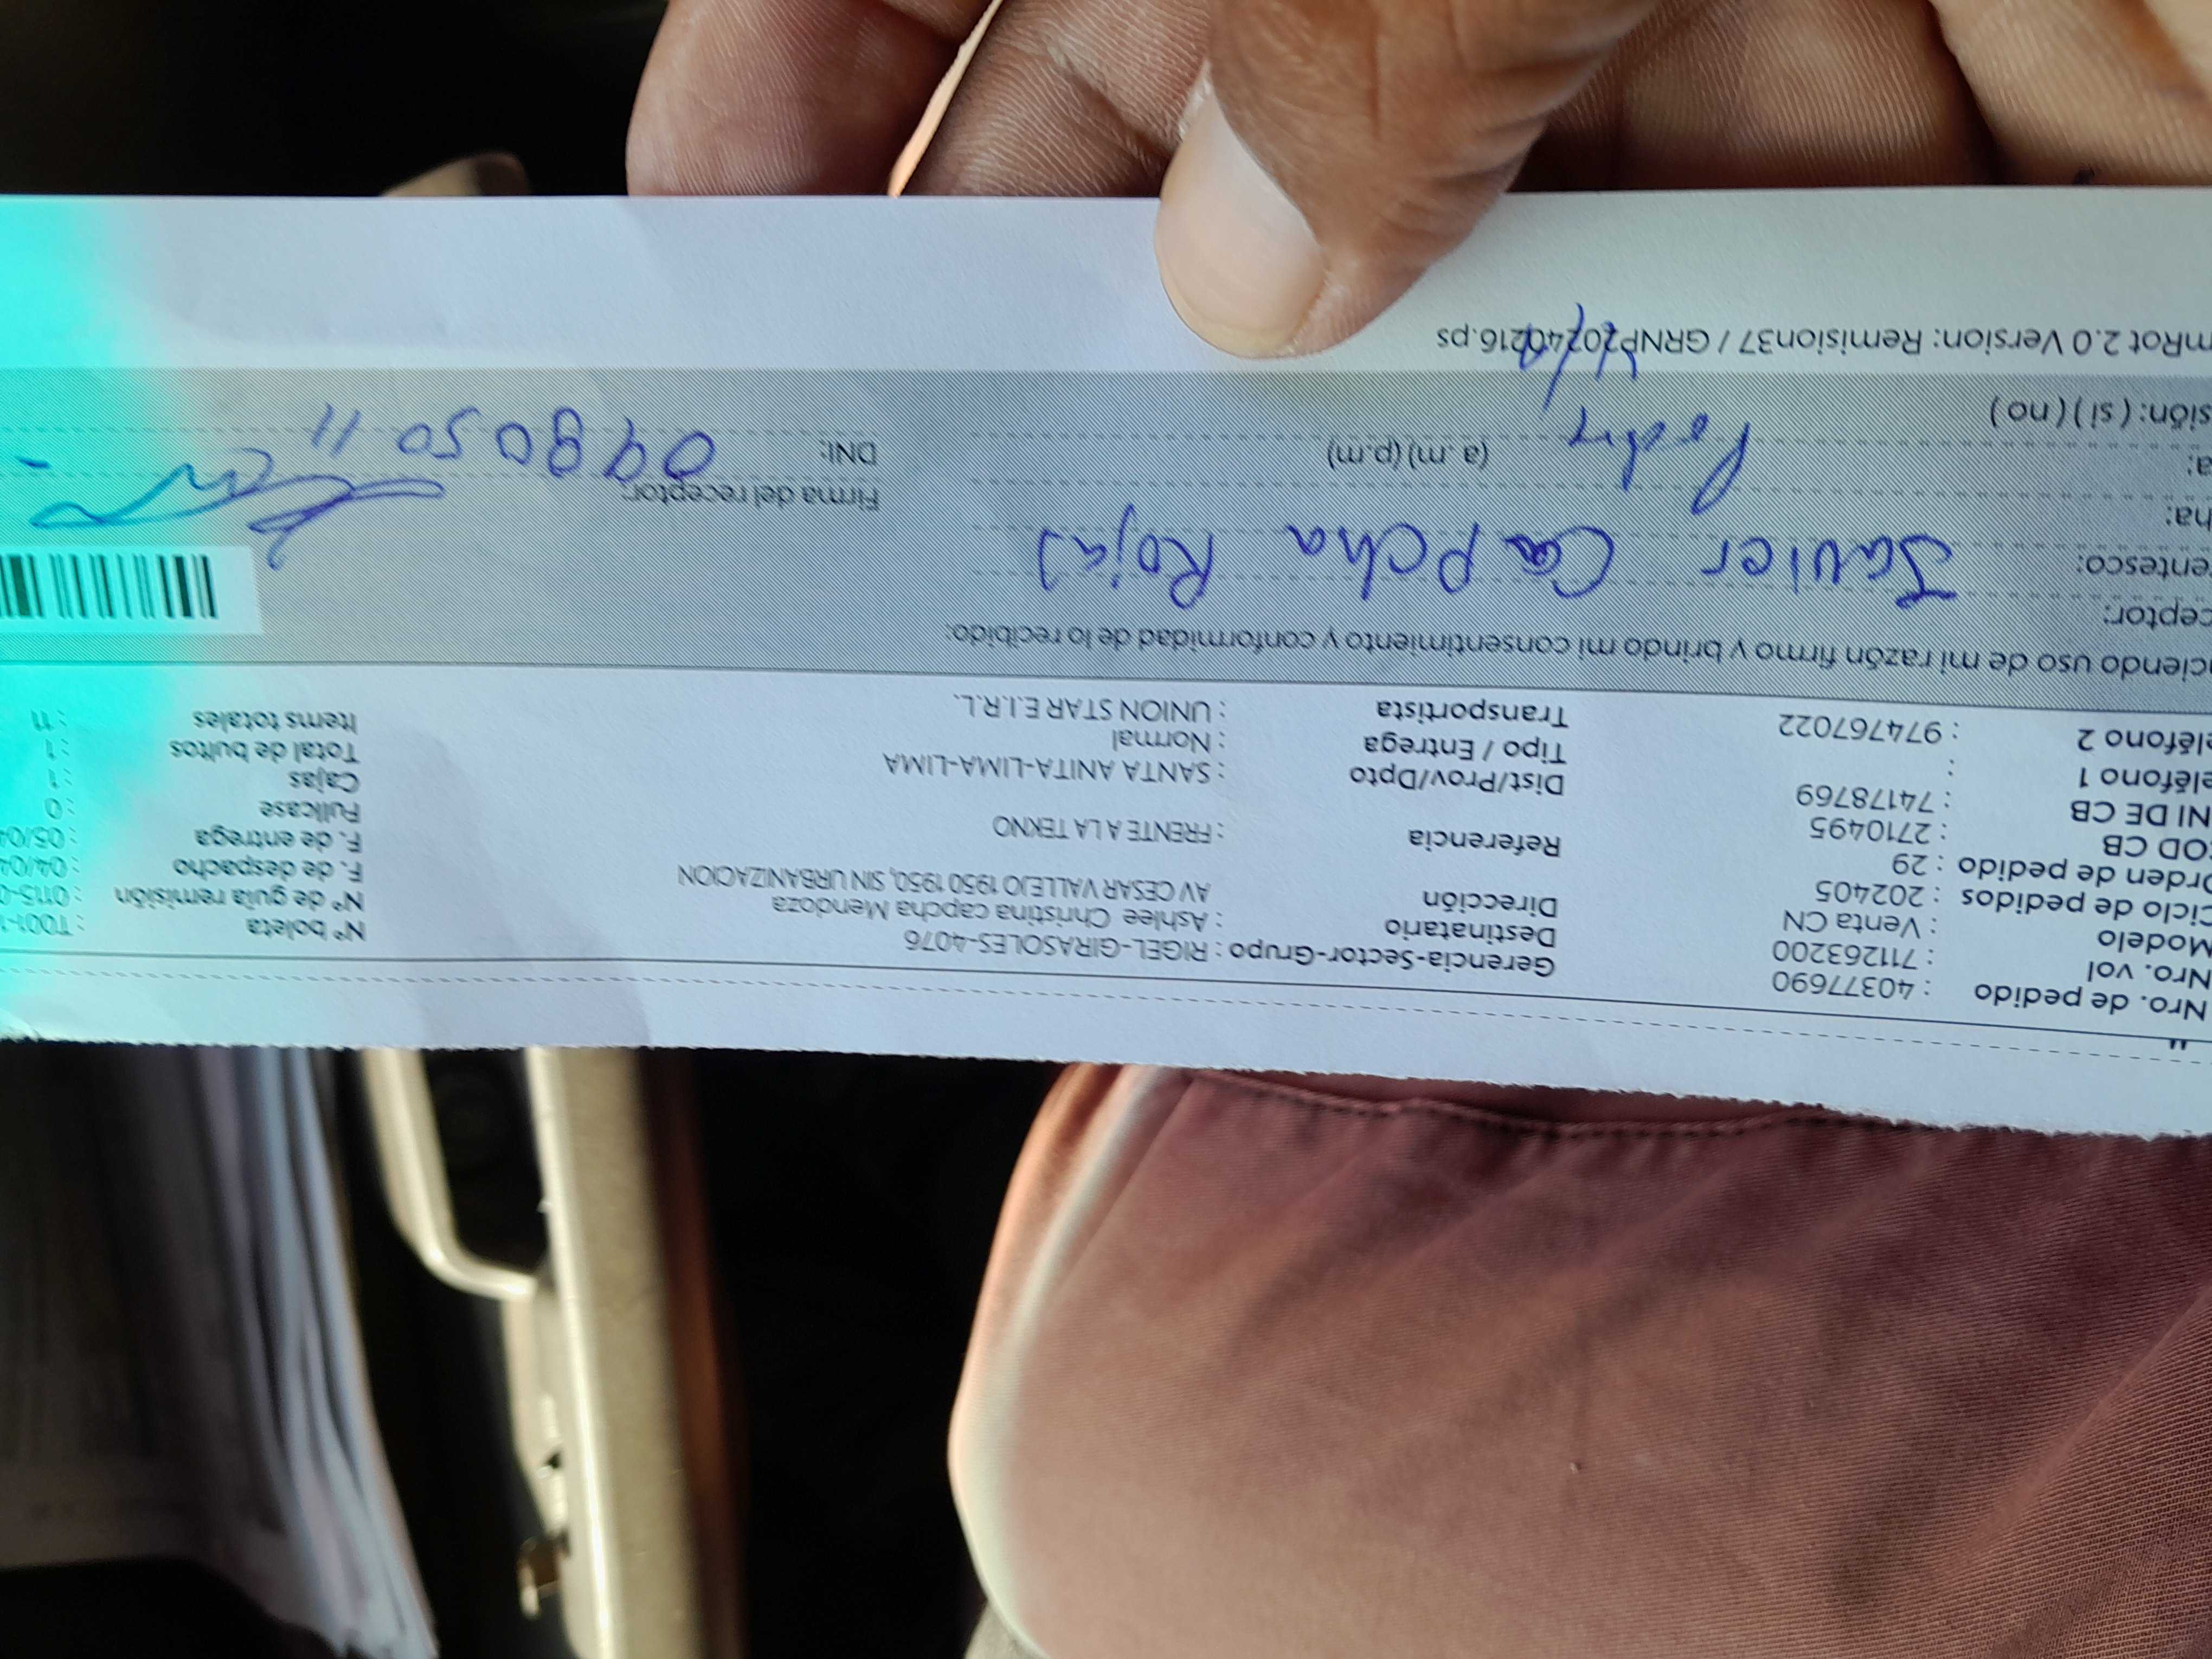 Nro. de pedido : 40377690
Nro. vol : 711263200
Modelo : Venta CN
Ciclo de pedidos : 202405
Orden de pedido : 29
COD CB : 2710495
NI DE CB : 74178769
eléfono 1 :
eléfono 2 : 974767022
Gerencia-Sector-Grupo : RIGEL-GIRASOLES-4076
Destinatario : Ashlee Christina capcha Mendoza
Dirección AV CESAR VALLEJO 1950 1950, SIN URBANIZACION
Referencia : FRENTE A LA TEKNO
Dist/Prov/Dpto : SANTA ANITA-LIMA-LIMA
Tipo / Entrega : Normal
Transportista : UNION STAR E.I.R.L.
N° boleta : T001-
N° de guía remisión : 0115-0
F. de despacho : 04/04
F. de entrega : 05/04
Fullcase : 0
Cajas : 1
Total de bultos : 1
Items totales : 11
ciendo uso de mi razón firmo y brindo mi consentimiento y conformidad de lo recibido:
ceptor: Javier Capcha Rojas
entesco:
ha: Padre
a: (a.m) (p.m)
sión: ( si ) ( no )
Firma del receptor:
DNI: 09805011
mRot 2.0 Version: Remision37 / GRNP20240216.ps